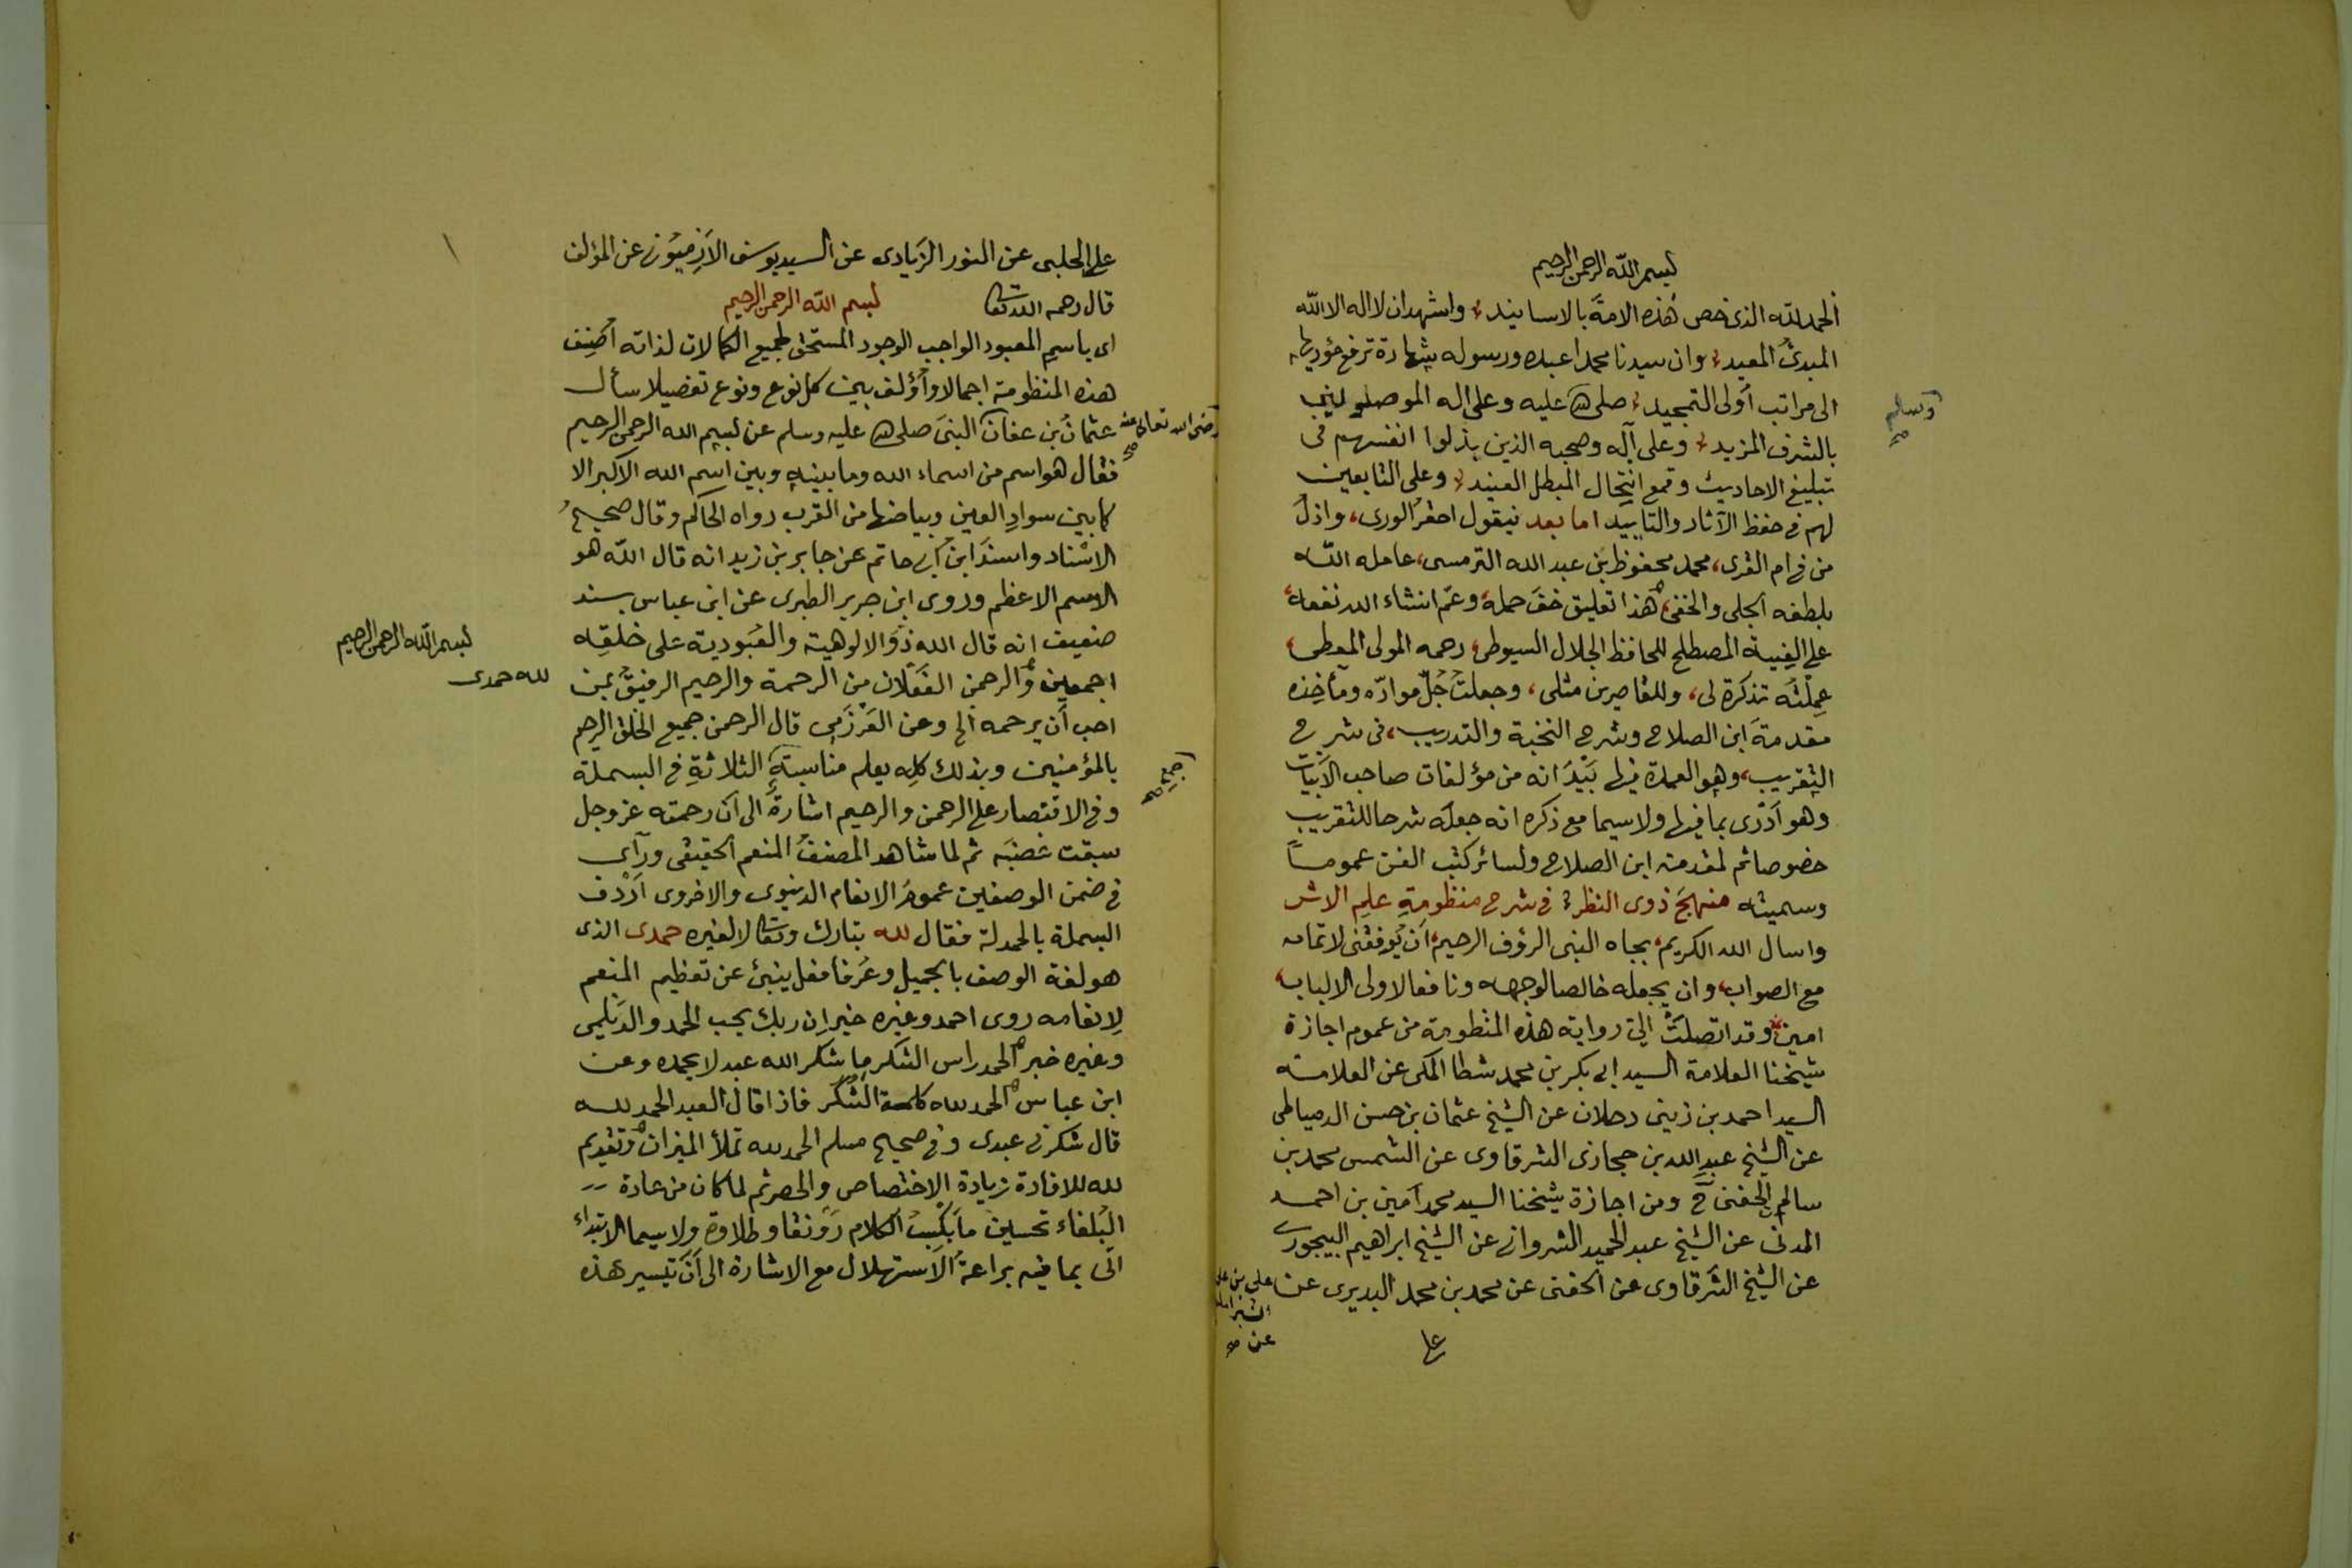 بسم الله الرحمن الرحيم
الحمد لله الذى خص هذه الامة بالاسانيد، واشهد ان لا اله الا الله
المبدئ المعيد، وان سيدنا محمدا عبده ورسوله شهادة ترفع مؤديها
الى مراتب أولى التمجيد، صلى الله عليه وعلى اله الموصلو لنيب
وسلم صح
بالشرف المزيد، وعلى آله وصحبه الذين بذلوا انفسهم فى
تبليغ الاحاديث وقمع انتحال المبطل العنيد، وعلى التابعين
لهم فى حفظ الآثار والتاييد اما بعد فيقول احقر الورى، واذل
من فى ام القرى، محمد محفوظ بن عبد الله الترمسى، عامله الله
بلطفه الجلى والخفى، هذا تعليق خف حمله، وعم انشاء الله نفعه،
على الفية المصطلح للحافظ الجلال السيوطى، رحمه المولى المعطى،
عملته تذكرة لى، وللقاصرين مثلى، وجعلت جل مواده ومآخذه
مقدمة ابن الصلاح وشرح النخبة والتدريب، فى شرح
التقريب، وهو العمدة فيها بيد انه من مؤلفات صاحب الأبيات
وهو أدرى بما فيها ولاسيما مع ذكره انه جعله شرحا للتقريب
خصوصا ثم لمقدمة ابن الصلاح ولسائر كتب الفن عموما
وسميته منهج ذوى النظر، فى شرح منظومة علم الاثر
واسال الله الكريم، بجاه النبى الرؤف الرحيم، ان يوفقنى لاتمامه
مع الصواب، وان يجعله خالصا لوجهه ونافعا لاولى الالباب،
امين، وقد اتصلت الىّ رواية هذه المنظومة من عموم اجازة
شيخنا العلامة السيد ابى بكر بن محمد شطا المكى عن العلامة
السيد احمد بن زينى دحلان عن الشيخ عثمان بن حسن الدمياطى
عن الشيخ عبد الله بن حجازى الشرقاوى عن الشمس محمد بن
سالم الحفنى ح ومن اجازة شيخنا السيد محمد امين بن احمد
المدنى عن الشيخ عبد الحميد الشروانى عن الشيخ ابراهيم البيجورى
عن الشيخ الشرقاوى عن الحفنى عن محمد بن محمد البديرى عن
على بن على
الشبراملسى
عن صح
على
على الحلبى عن النور الزيادى عن السيد يوسف الأرميونى عن المؤلف
قال رحمه الله تعالى بسم الله الرحمن الرحيم
اى باسم المعبود الواجب الوجود المستحق لجميع الكمالات لذاته أصنف
هذه المنظومة اجمالا وأؤلف بين كل نوع ونوع تفصيلا سأل
عثمان بن عفان النبى صلى الله عليه وسلم عن بسم الله الرحمن الرحيم
رضى الله تعالى عنه صح
فقال هو اسم من اسماء الله وما بينه وبين اسم الله الاكبر الا
كما بين سواد العين وبياضها من القرب رواه الحاكم وقال صحيح
الاسناد واسند ابن ابى حاتم عن جابر بن زيد انه قال الله هو
الاسم الاعظم وروى ابن جرير الطبرى عن ابن عباس بسند
ضعيف انه قال الله ذو الالوهية والعبودية على خلقه
بسم الله الرحمن الرحيم
لله حمدى
اجمعين والرحمن الفعلان من الرحمة والرحيم الرفيق بمن
احب أن يرحمه الخ وعن العرزمى قال الرحمن جميع الخلق الرحيم
بالمؤمنين وبذلك كله يعلم مناسبة الثلاثة فى البسملة
وفى الاقتصار على الرحمن والرحيم اشارة الى أن رحمته عز وجل
سبقت غضبه ثم لما شاهد المصنف المنعم الحقيقى ورأى
فى ضمن الوصفين عموم الانعام الدنيوى والاخروى أردف
البسملة بالحمدلة فقال لله تبارك وتعالى لا لغيره حمدى الذى
هو لغة الوصف بالجميل وعرفا فعل ينبئ عن تعظيم المنعم
لانعامه روى احمد وغيره خبر ان ربك يحب الحمد والديلمى
وغيره خبر الحمد راس الشكر ما شكر الله عبد لا يحمده وعن
ابن عباس الحمد لله كلمة الشكر فاذا قال العبد الحمد لله
قال شكرنى عبدى وفى صحيح مسلم الحمد لله تملأ الميزان وتقديم
لله للافادة زيادة الاختصاص والحصر ثم لما كان من عادة
البلغاء تحسين ما يكسب الكلام رونقا وطلاوة ولاسيما الابتداء
اتى بما فيه براعة الاستهلال مع الاشارة الى أن تيسير هذه